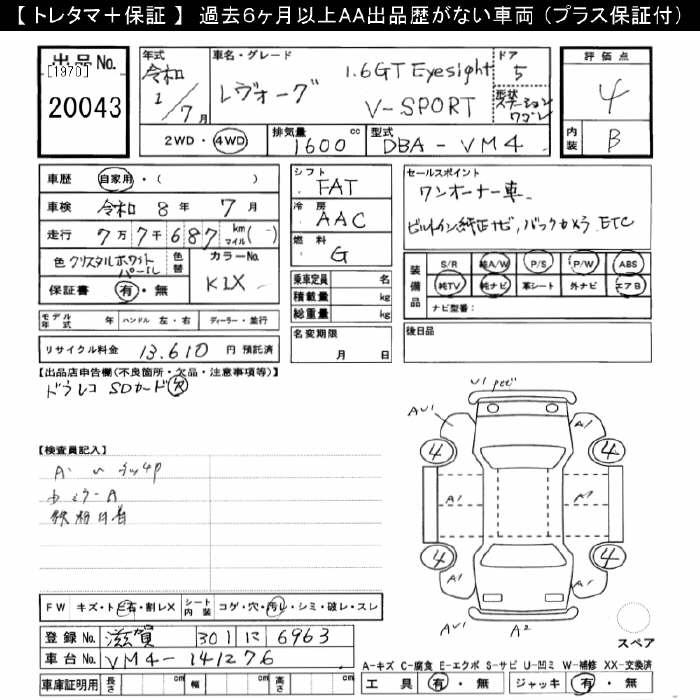 【 トレタマ＋保証 】 過去６ヶ月以上ＡＡ出品歴がない車両（プラス保証付）
出品No.
[1970]
20043
年式
令和
1/7月
車名・グレード
レヴォーグ
1.6GT Eyesight
V-SPORT
ドア
5
形状
ステーション
ワゴン
2WD・4WD
排気量
1600 cc
型式
DBA-VM4
評価点
4
内装
B
車歴 自家用・（ ）
車検 令和 8年 7月
走行 7万7千687 km マイル（-）
色 クリスタルホワイトパール
色替
カラーNo.
K1X
保証書 有・無
モデル年式 年 ハンドル 左・右 ディーラー・並行
リサイクル料金 13,610 円 預託済
シフト
FAT
冷房
AAC
燃料
G
乗車定員 名
積載量 kg
総重量 kg
名変期限
月 日
セールスポイント
ワンオーナー車、
ビルトイン純正ナビ、バックカメラ、ETC
装備品
S/R 純A/W P/S P/W ABS
純TV 純ナビ 革シート 外ナビ エアB
ナビ型番：
後日品
【出品店申告欄（不良箇所・欠品・注意事項等）】
ドラレコ SDカード欠
【検査員記入】
FW キズ・ト有石・割レX
シート内装 コゲ・穴・汚レ・シミ・破レ・スレ
登録No. 滋賀 301 に 6963
車台No. VM4-141276
車庫証明用 長さ 幅 高さ
U1
AU1
A1
4
4
A1
A1
4
4
A1
A1
AU1
A2
スペア
A-キズ C-腐食 E-エクボ S-サビ U-凹ミ W-補修 XX-交換済
工具 有・無 ジャッキ 有・無